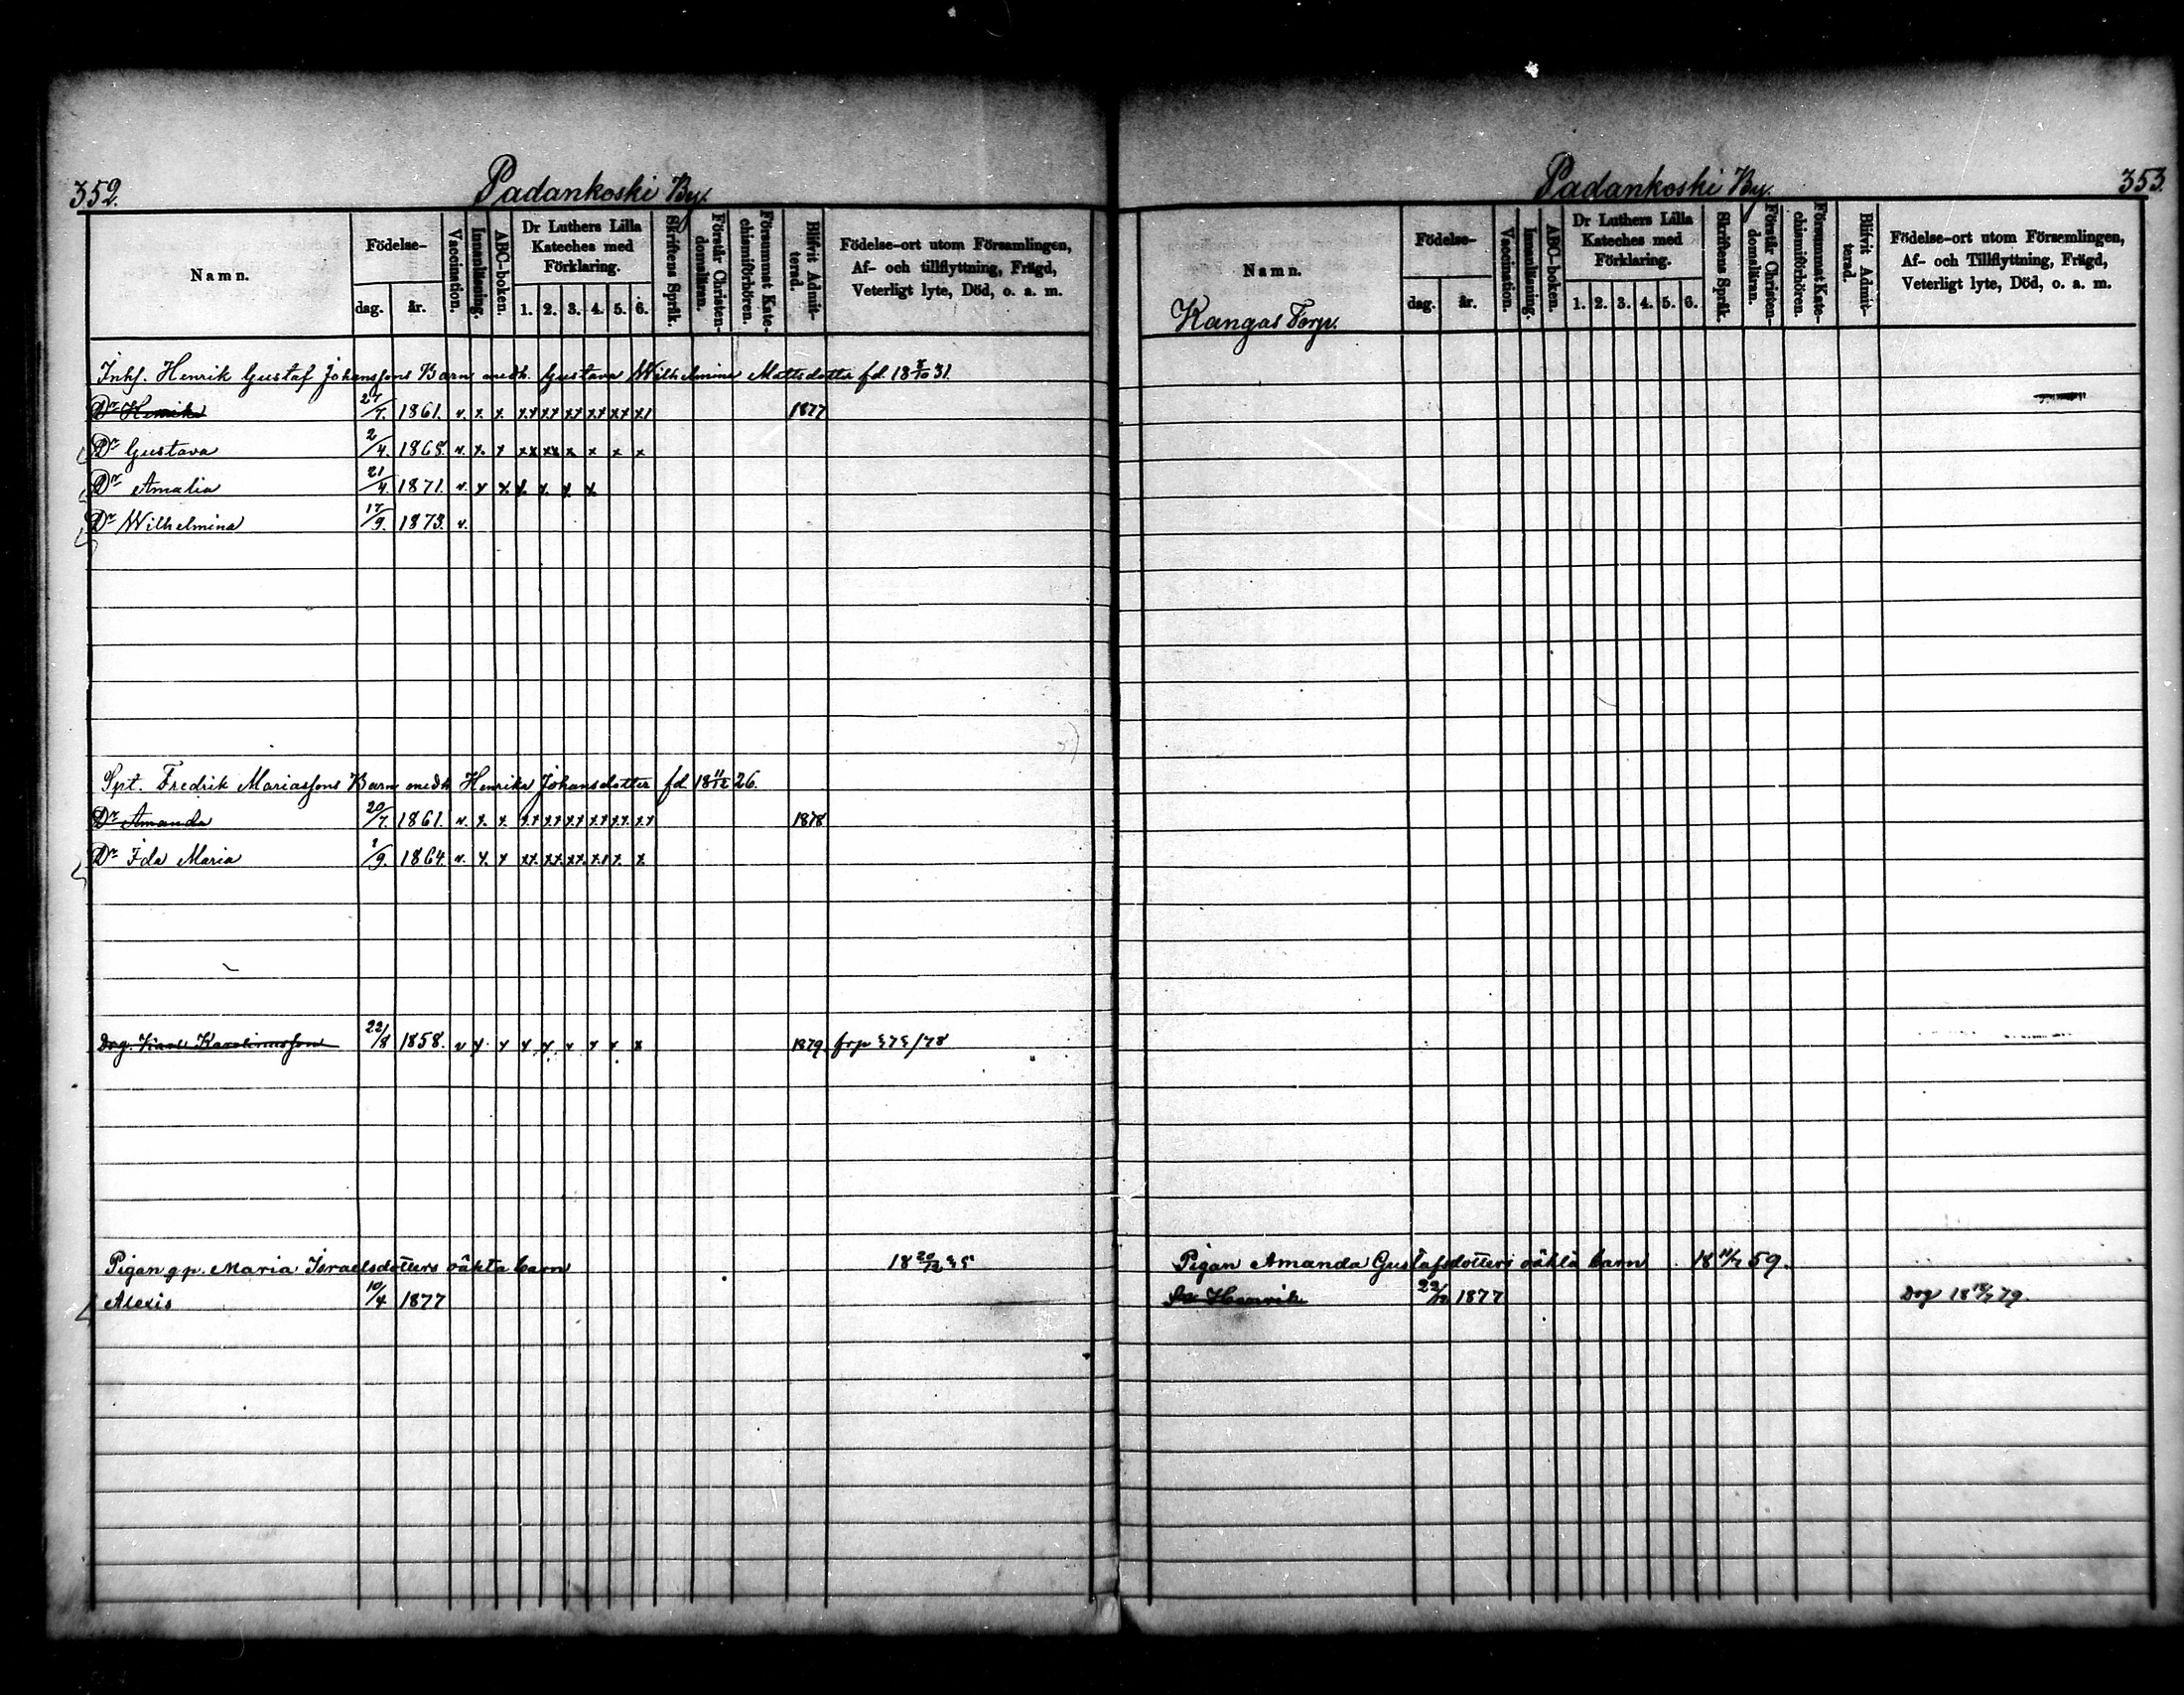 352.
Padankoski By.
Namn.
Födelse-
dag. år.
Vaccination.
Innanläsning.
ABC-boken.
Dr Luthers Lilla Kateches med Förklaring.
1. 2. 3. 4. 5. 6.
Skriftens Språk.
Förstår Christendomsläran.
Försummat Katechismiförhören.
Blifvit Admitterad.
Födelse-ort utom Församlingen,
Af- och tillflyttning, Frägd,
Veterligt lyte, Död, o. a. m.
Inhs. Henrik Gustaf Johanssons Barn medh. Gustava Wilhelmina Mattsdotter fd. 31.
Dr Henrik 27/7. 1861. v. x. x. xx xx xx xx xx x1 1877
Dr Gustava 2/4. 1868. v. x. x xx xx x x x x
Dr Amalia 21/4. 1871. v. x x x. x. x x.
Dr Wilhelmina 17/9. 1873. v.
Spt. Fredrik Mariassons Barn medh Henrika Johansdotter fd. 18 11/12 26.
Dr Amanda 20/7. 1861. v. x. x. xx xx xx xx xx. xx 1878
Dr Ida Maria 1/9. 1864. v. x. x xx. xx. xx. x1 x. x.
Drg. Karolinusson 22/8 1858. v x. x x x. v x x x 1879 frp 575/78
Pigan gp. Maria Israelsdotters oäkta barn
Alexis 10/4 1877
353.
Padankoski By.
Namn.
Kangas Torp.
Födelse-
dag. år.
Vaccination.
Innanläsning.
ABC-boken.
Dr Luthers Lilla Kateches med Förklaring.
1. 2. 3. 4. 5. 6.
Skriftens Språk.
Förstår Christendomsläran.
Försummat Katechismiförhören.
Blifvit Admitterad.
Födelse-ort utom Församlingen,
Af- och Tillflyttning, Frägd,
Veterligt lyte, Död, o. a. m.
Pigan Amanda Gustafsdotters oäkta barn 59.
Henrik 1877 79.